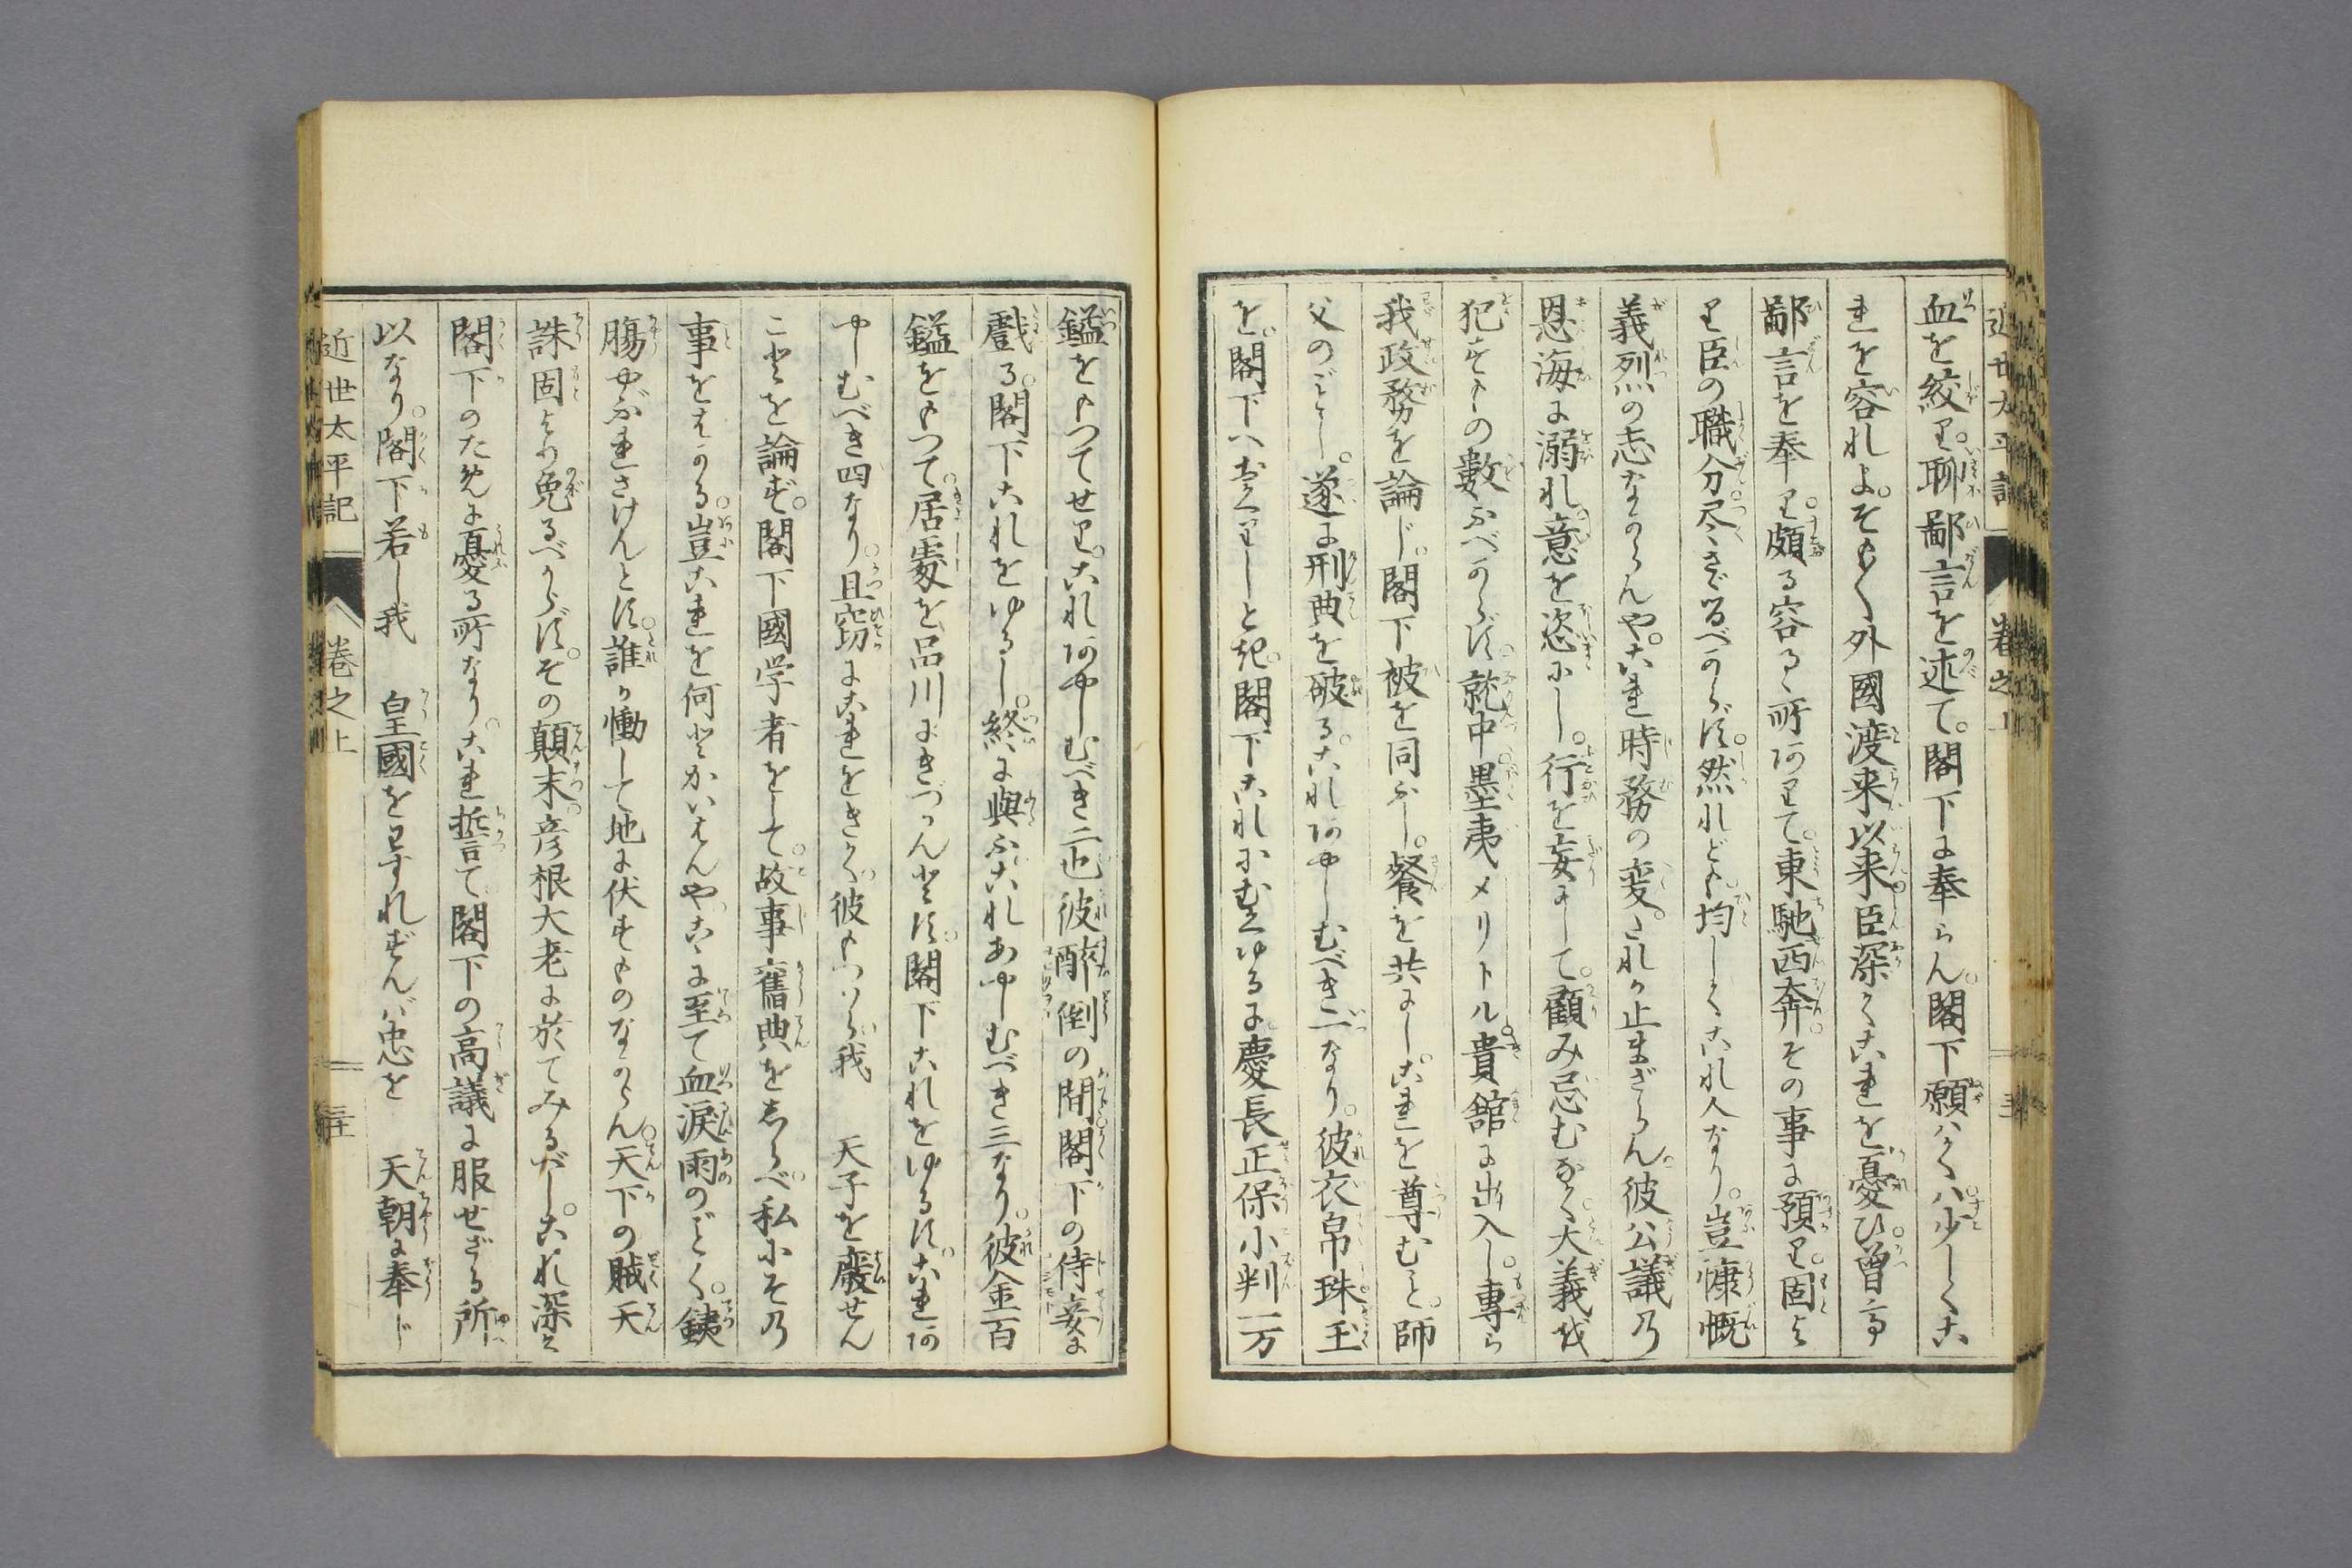 近世太平記 卷之上
血を絞り。聊鄙言を述て。閣下に奉らん。閣下願はくハ少しくこ
れを容れよ。そもそく外國渡来以来。臣深くこれを憂ひ。曽て
鄙言を奉り。頗る容るゝ所ありて。東馳西奔。その事に預り。固よ
り臣の職分。尽さざるべからず。然れども。均しくこれ人なり。豈慷慨
義烈の志なからんや。これ時務の変。これが止まざらん。彼公議乃
恩海に溺れ。意を恣にし。行を妄にして。顧み忌むなく。大義を
犯すもの數ふべからず。就中。墨夷メリトル。貴舘に出入し。專ら
我政務を論じ。閣下被を同ふし。餐を共にし。これを尊むこと。師
父のごとし。遂に刑典を破る。これあやしむべき一なり。彼衣帛珠玉
を。閣下へおくりしとき。閣下これにむくゆるに慶長正保小判一万
鎰をもつてせり。これあやしむべき二也。彼醉倒の間。閣下の侍妾に
戯る。閣下これをゆるし。終に與ふ。これあやしむべき三なり。彼金百
鎰をもつて。居處を品川にきづかんとす。閣下これをゆるす。これあ
やしむべき四なり。且窃にこれをきく。彼もつハら我 天子を廢せん
ことを論ず。閣下國学者をして。故事舊典をしらべ。私にその
事をはかる。豈これを何とかいはんや。こゝに至て血淚雨のごとく。銕
膓やぶれさけんとす。誰か慟して地に伏すものなからん。天下の賊。天
誅固より免るべからず。その顛末彦根大老に於てみるべし。これ深く
閣下のために憂る所なり。これ誓て閣下の高議に服せざる所
以なり。閣下若し我 皇國をわすれずんバ忠を 天朝に奉じ
近世太平記 卷之上